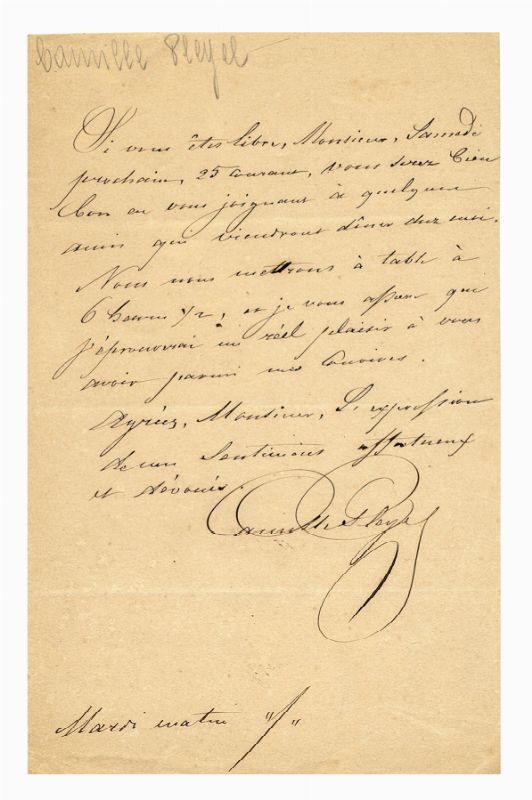 Camille Pleyel
Si vous êtes libre, Monsieur, Samedi
prochain, 25 courant, vous serez bien
bon en vous joignant à quelques
amis qui viendront dîner chez moi.
Nous nous mettrons à table à
6 heures 1/2, et je vous assure que
j'éprouverai un réel plaisir à vous
avoir parmi mes convives.
Agréez, Monsieur, L'expression
de mes Sentimens affectueux
et dévoués.
Camille Pleyel
Mardi matin "/"